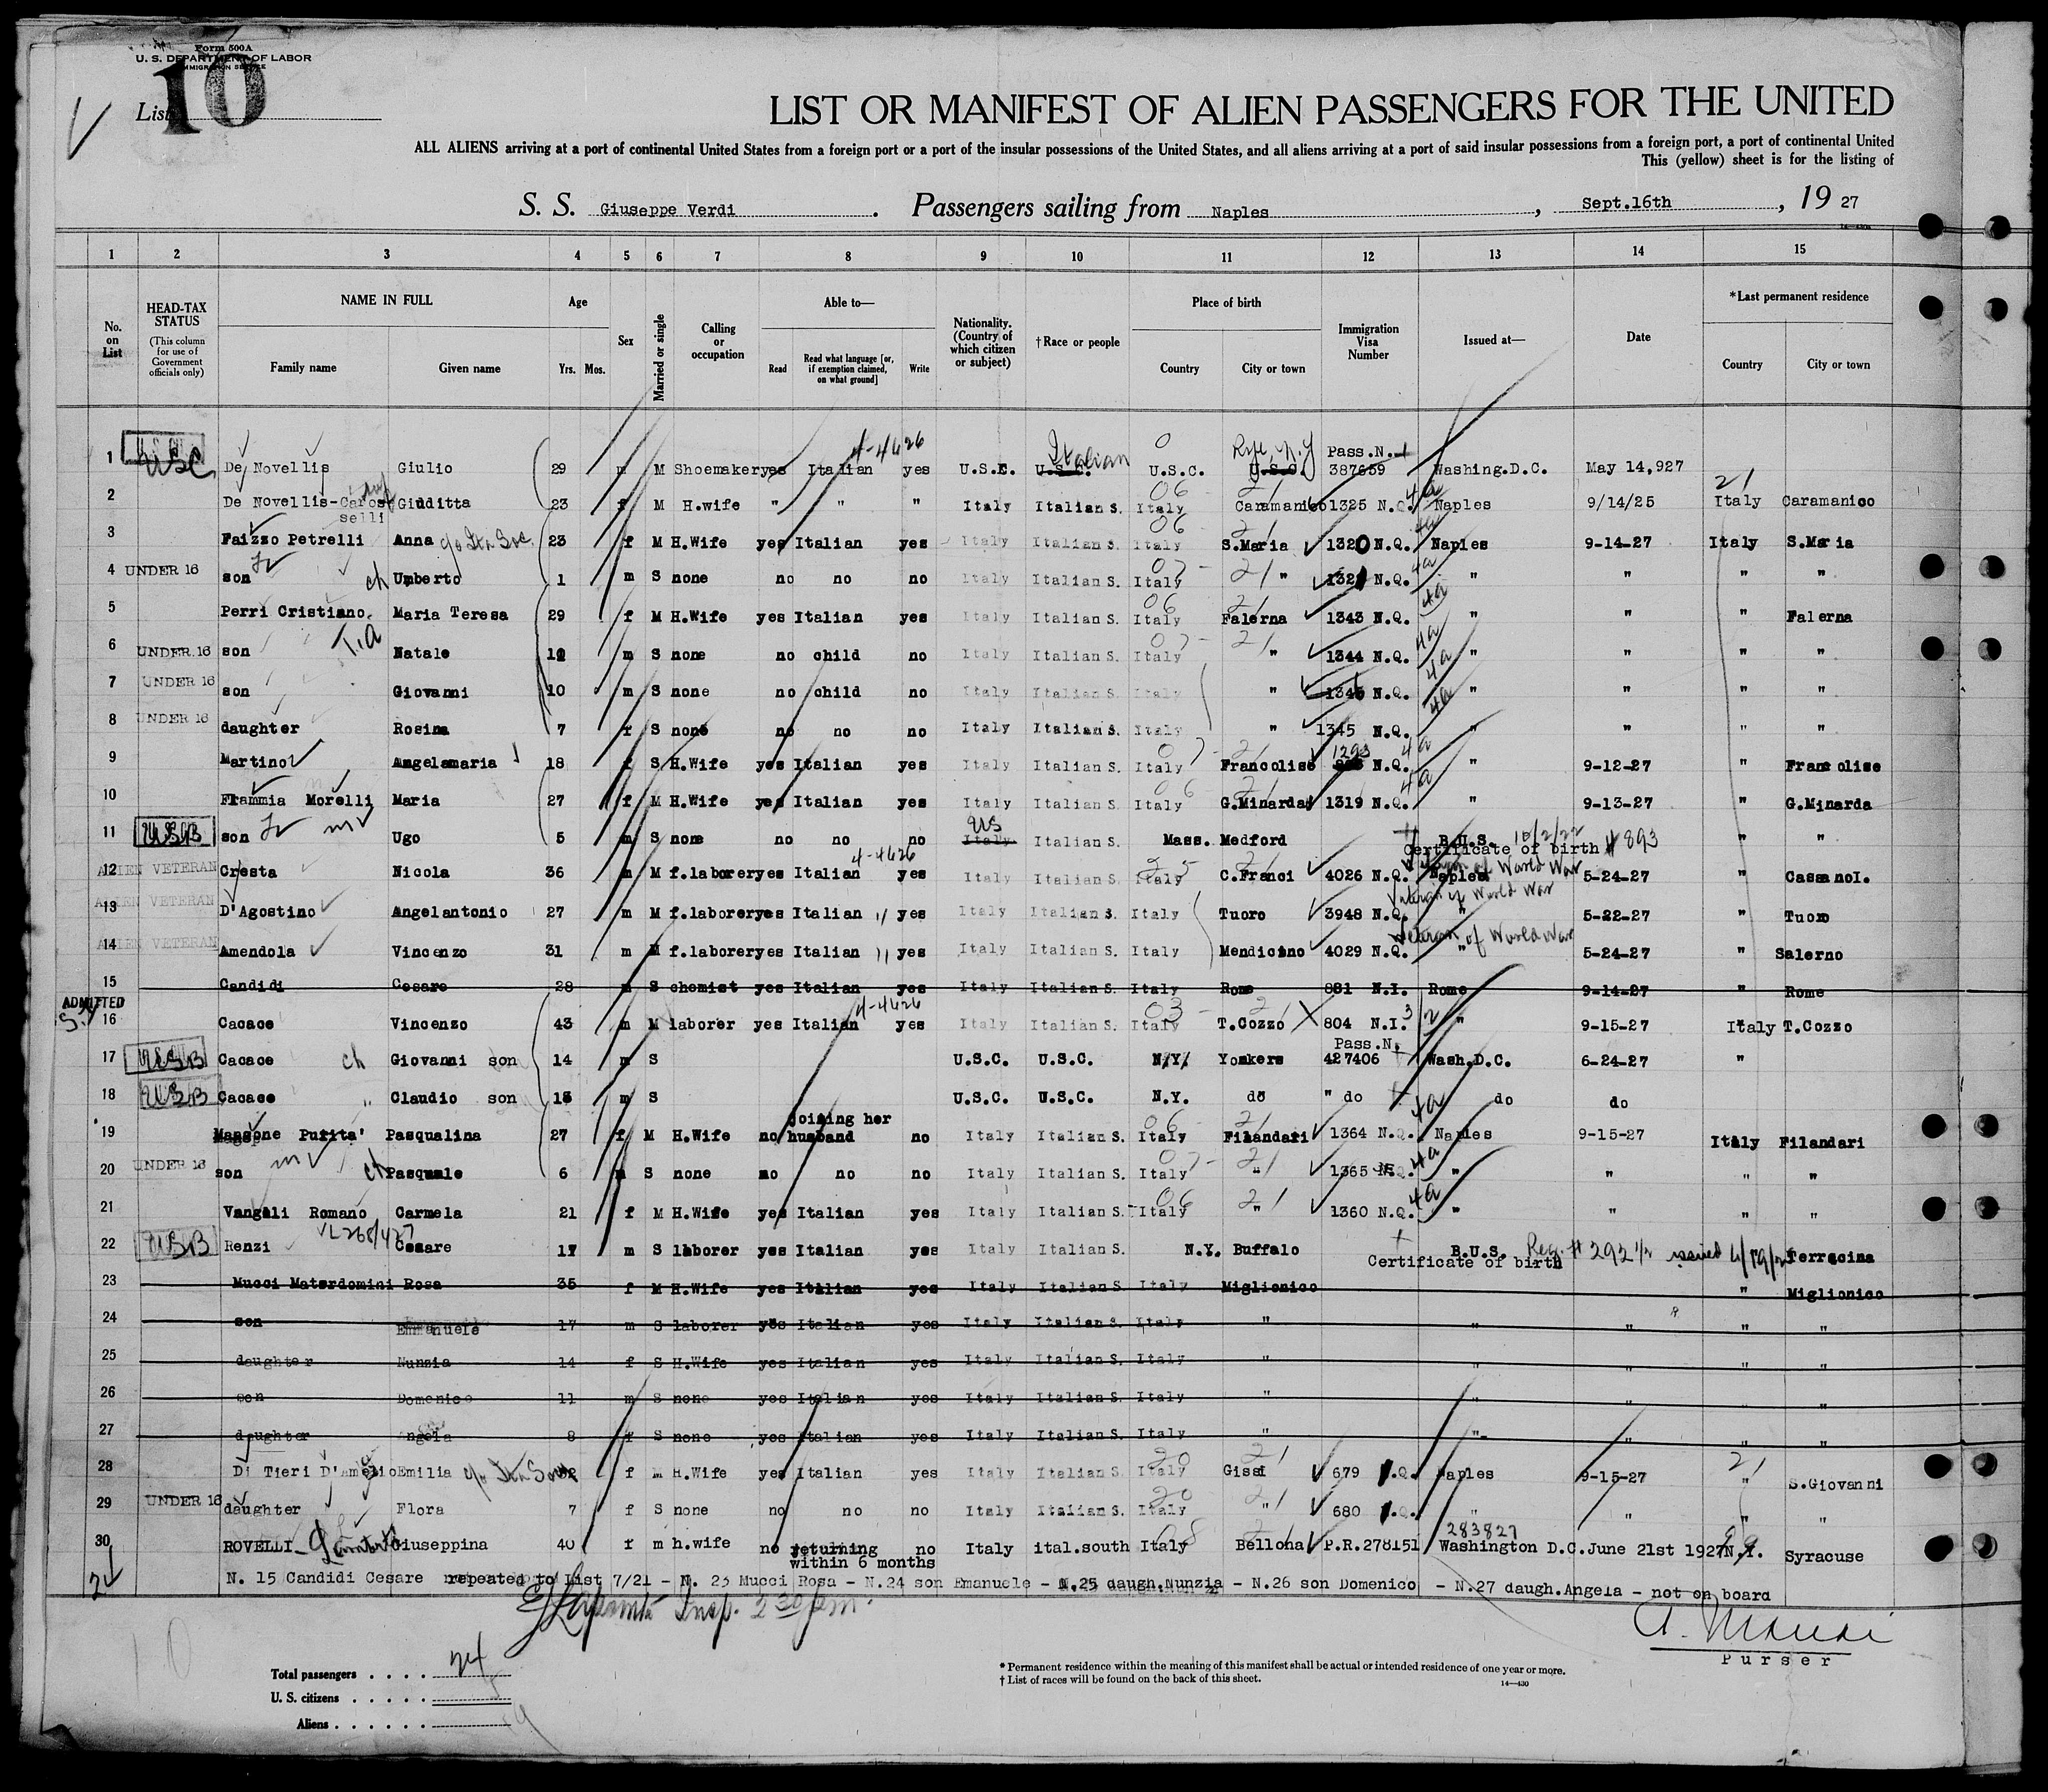 Form 500A
U. S. DEPARTMENT OF LABOR
IMMIGRATION SERVICE
List 10
LIST OR MANIFEST OF ALIEN PASSENGERS FOR THE UNITED
ALL ALIENS arriving at a port of continental United States from a foreign port or a port of the insular possessions of the United States, and all aliens arriving at a port of said insular possessions from a foreign port, a port of continental United
This (yellow) sheet is for the listing of
S. S. Giuseppe Verdi . Passengers sailing from Naples , Sept.16th , 19 27
14-430
1 2 3 4 5 6 7 8 9 10 11 12 13 14 15
No. on List
HEAD-TAX STATUS (This column for use of Government officials only)
NAME IN FULL Family name Given name
Age Yrs. Mos.
Sex
Married or single
Calling or occupation
Able to— Read Read what language [or, if exemption claimed, on what ground] Write
Nationality. (Country of which citizen or subject)
†Race or people
Place of birth Country City or town
Immigration Visa Number
Issued at—
Date
*Last permanent residence Country City or town
4-4626 Italian 0 Rye, N.Y Pass.N.
1 USC De Novellis Giulio 29 m M Shoemaker yes Italian yes U.S.C. U.S.C. U.S.C. U.S.C. 387659 Washing.D.C. May 14,927
2 De Novellis-Carosselli Giuditta 23 f M H.wife " " " Italy Italian S. Italy Caramanico 1325 N.Q. Naples 9/14/25 Italy Caramanico
3 Faizzo Petrelli Anna 23 f M H.Wife yes Italian yes Italy Italian S. Italy S.Maria 1320 N.Q. Naples 9-14-27 Italy S.Maria
4 UNDER 16 son ch Umberto 1 m S none no no no Italy Italian S. Italy " 1321 N.Q. " " " "
5 Perri Cristiano. Maria Teresa 29 f M H.Wife yes Italian yes Italy Italian S. Italy Falerna 1343 N.Q. " " " Falerna
6 UNDER 16 son Natale m S none no child no Italy Italian S. Italy " 1344 N.Q. " " " "
7 UNDER 16 son Giovanni 10 m S none no child no Italy Italian S. Italy " N.Q. " " " "
8 UNDER 16 daughter Rosina 7 f S none no no no Italy Italian S. Italy " 1345 N.Q. " " " "
9 Martino Angelamaria 18 f S H.Wife yes Italian yes Italy Italian S. Italy Francolise 1293 N.Q. " 9-12-27 " Francolise
10 Frammia Morelli Maria 27 f M H.Wife yes Italian yes Italy Italian S. Italy G.Minarda 1319 N.Q. " 9-13-27 " G.Minarda
11 USB son Ugo 5 m S none no no no US Italy Italian S. Mass. Medford B.U.S. 10/2/22 " "
Certificate of birth # 893
12 ALIEN VETERAN Cresta Nicola 36 m M f.laborer yes Italian 4-4626 yes Italy Italian S. Italy C.Franci 4026 N.Q. Naples Veteran of World War 5-24-27 " CassanoI.
13 ALIEN VETERAN D'Agostino Angelantonio 27 m M f.laborer yes Italian " yes Italy Italian S. Italy Tuoro 3948 N.Q. " Veteran of World War 5-22-27 " Tuoro
14 ALIEN VETERAN Amendola Vincenzo 31 m M f.laborer yes Italian " yes Italy Italian S. Italy Mendicino 4029 N.Q. " Veteran of World War 5-24-27 " Salerno
15 Candidi Cesare 28 m S chemist yes Italian yes Italy Italian S. Italy Rome 881 N.I. Rome 9-14-27 " Rome
ADMITTED
16 Cacace Vincenzo 43 m M laborer yes Italian 4-4626 yes Italy Italian S. Italy T.Cozzo 804 N.I. " 9-15-27 Italy T.Cozzo
Pass.N.
17 USB Cacace ch Giovanni son 14 m S U.S.C. U.S.C. N.Y. Yonkers 427406 Wash.D.C. 6-24-27 "
18 USB Cacace " Claudio son m S U.S.C. U.S.C. N.Y. do " do do do
joining her
19 Mansone Purita' Pasqualina 27 f M H.Wife no husband no Italy Italian S. Italy Filandari 1364 N.Q. Naples 9-15-27 Italy Filandari
20 UNDER 16 son ch Pasquale 6 m S none no no no Italy Italian S. Italy " 1365 N.Q. " " " "
21 Vangeli Romano Carmela 21 f M H.Wife yes Italian yes Italy Italian S. Italy " 1360 N.Q. " " " "
22 USB Renzi Cesare 17 m S laborer yes Italian yes Italy Italian S. N.Y. Buffalo B.U.S. Terracina
Certificate of birth Reg. # 292 1/2 issued
23 Mucci Materdomini Rosa 35 f M H.Wife yes Italian yes Italy Italian S. Italy Miglionico " Miglionico
24 son Emanuele 17 m S laborer yes Italian yes Italy Italian S. Italy " " " " "
25 daughter Nunzia 14 f S H.Wife yes Italian yes Italy Italian S. Italy " " " " "
26 son Domenico 11 m S none yes Italian yes Italy Italian S. Italy " " " " "
27 daughter Angela 8 f S none yes Italian yes Italy Italian S. Italy " " " " "
28 Di Tieri D'Amelio Emilia f M H.Wife yes Italian yes Italy Italian S. Italy Gissi 679 Naples 9-15-27 " S.Giovanni
29 UNDER 16 daughter Flora 7 f S none no no no Italy Italian S. Italy " 680 " " " "
283827
30 ROVELLI- Giuseppina 40 f m h.wife no returning within 6 months no Italy ital.south Italy Bellona P.R.278151 Washington D.C. June 21st 1927 Syracuse
N. 15 Candidi Cesare repeated to List 7/21 - N. 23 Mucci Rosa - N.24 son Emanuele - N.25 daugh.Nunzia - N.26 son Domenico - N.27 daugh.Angela - not on board
Insp. 2 30 pm.
Purser
Total passengers . . . . 24
U. S. citizens . . . . . 5
Aliens . . . . . . 19
* Permanent residence within the meaning of this manifest shall be actual or intended residence of one year or more.
† List of races will be found on the back of this sheet.
14—430